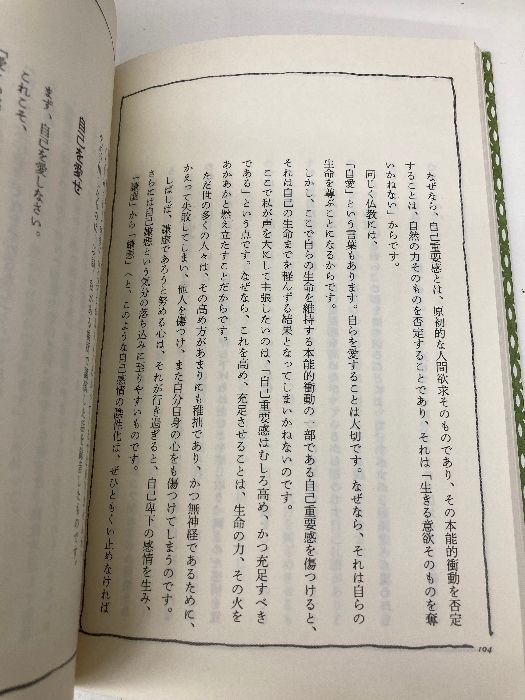 なぜなら、自己重要感とは、原初的な人間欲求そのものであり、その本能的衝動を否定
することは、自然の力そのものを否定することであり、それは「生きる意欲そのものを奪
いかねない」からです。
同じく仏教には、
「自愛」という言葉もあります。自らを愛することは大切です。なぜなら、それは自らの
生命を尊ぶことになるからです。
しかし、ここで自らの生命を維持する本能的衝動の一部である自己重要感を傷つけると、
それは自己の生命までを軽んずる結果となってしまいかねないのです。
ここで私が声を大にして主張したいのは、「自己重要感はむしろ高め、かつ充足すべき
である」という点です。なぜなら、これを高め、充足させることは、生命の力、その火を
あかあかと燃え立たすことだからです。
ただ世の多くの人々は、その高め方があまりにも稚拙であり、かつ無神経であるために、
かえって失敗してしまい、他人を傷つけ、また自分自身の心をも傷つけてしまうのです。
しばしば、謙虚であろうと努める心は、それが行き過ぎると、自己卑下の感情を生み、
さらには自己嫌悪という気分の落ち込みに至りやすいものです。
「謙虚」から「嫌悪」へと、このような自己感情の陰性化は、ぜひともくい止めなければ
104
自己を愛せ
まず、自己を愛しなさい。
これこそ、